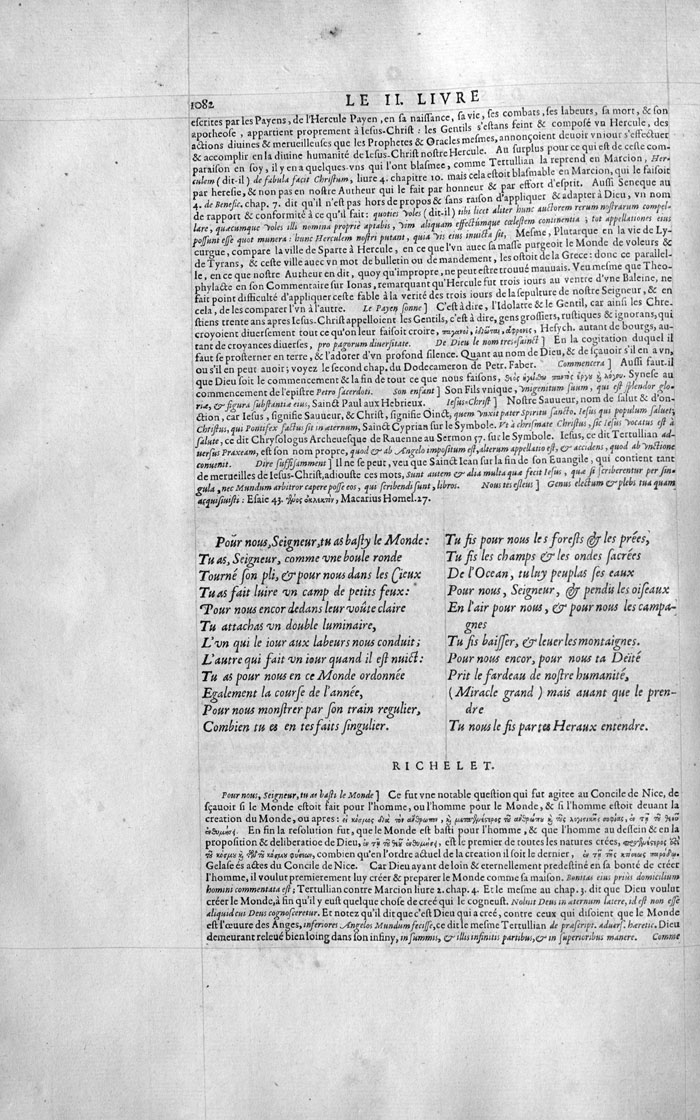 1082
LE II. LIVRE
escrites par les Payens, de l'Hercule Payen, en sa naissance, sa vie, ses combats, ses labeurs, sa mort, & son
apotheose, appartient proprement à Iesus-Christ : les Gentils s'estans feint & composé vu Hercule, des
actions diuines & merueilleuses que les Prophetes & Oracles mesmes, annonçoient deuoir vn iour s'effectuer
& accomplir en la diuine humanité de Iesus-Christ nostre Hercule. Au surplus pour ce qui est de ceste com-
paraison en soy, il y en a quelques-vns qui l'ont blasmee, comme Tertullian la reprend en Marcion, Her-
culem (dit-il) de fabula facit Christum, liure 4. chapitre 10. mais cela estoit blasmable en Marcion, qui le faisoit
par heresie, & non pas en nostre Autheur qui le fait par honneur & par effort d'esprit. Aussi Seneque au
4. de Benefic. chap. 7. dit qu'il n'est pas hors de propos & sans raison d'appliquer & adapter à Dieu, vn nom
de rapport & conformité à ce qu'il fait: quoties voles (dit-il) tibi licet aliter hunc auctorem rerum nostrarum compel-
lare, quæcumque voles illi nomina propriè aptabis, vim aliquam effectúmque cœlestem continentia ; tot appellationes eius
possunt esse quot munera : hunc Herculem nostri putant, quia vis eius inuicta sit, Mesme, Plutarque en la vie de Ly-
curgue, compare la ville de Sparte à Hercule, en ce que l'vn auec sa masse purgeoit le Monde de voleurs &
de Tyrans, & ceste ville auec vn mot de bulletin ou de mandement, les ostoit de la Grece: donc ce parallel-
le, en ce que nostre Autheur en dit, quoy qu'impropre, ne peut estre trouué mauuais. Veu mesme que Theo-
phylacte en son Commentaire sur Ionas, remarquant qu'Hercule fut trois iours au ventre d'vne Baleine, ne
fait point difficulté d'appliquer ceste fable à la verité des trois iours de la sepulture de nostre Seigneur, & en
cela, de les comparer l'vn à l'autre. Le Payen sonne] C'est à dire, l'Idolatre & le Gentil, car ainsi les Chre-
stiens trente ans apres Iesus-Christ appelloient les Gentils, c'est à dire, gens grossiers, rustiques & ignorans, qui
croyoient diuersement tout ce qu'on leur faisoit croire, Hesych. autant de bourgs, au-
tant de croyances diuerses, pro pagorum diuersitate. De Dieu le nom tres-sainct] En la cogitation duquel il
faut se prosterner en terre, & l'adorer d'vn profond silence. Quant au nom de Dieu, & de sçauoir s'il en a vn,
ou s'il en peut auoir ; voyez le second chap. du Dodecameron de Petr. Faber. Commencera] Aussi faut-il
que Dieu soit le commencement & la fin de tout ce que nous faisons, Synese au
commencement de l'epistre Petro sacerdoti. Son enfant] Son Fils vnique, vnigenitum suum, qui est splendor glo-
riæ, & figura substantiæ eius, Sainct Paul aux Hebrieux. Iesus-Christ] Nostre Sauueur, nom de salut & d'on-
ction, car Iesus, signifie Sauueur, & Christ, signifie Oinct, quem vnxit pater Spiritu sancto. Iesus qui populum saluet,
Christus, qui Pontifex factus sit in æternum, Sainct Cyprian sur le Symbole. Vt à chrismate Christus, sic Iesus vocatus est à
salute, ce dit Chrysologus Archeuesque de Rauenne au Sermon 57. sur le Symbole. Iesus, ce dit Tertullian ad-
uersus Praxeam, est son nom propre, quod & ab Angelo impositum est, alterum appellatio est, & accidens, quod ab vnctione
conuenit. Dire suffisamment] Il ne se peut, veu que Sainct Iean sur la fin de son Euangile, qui contient tant
de merueilles de Iesus-Christ, adiouste ces mots, Sunt autem & alia multa quæ fecit Iesus, quæ si scriberentur per sin-
gula, nec Mundum arbitror capere posse eos, qui scribendi sunt, libros. Nous tes esleus] Genus electum & plebs tua quam
acquisiuisti : Esaie 43. Macarius Homel. 27.
Pour nous, Seigneur, tu as basty le Monde:
Tu as, Seigneur, comme vne boule ronde
Tourné son pli, & pour nous dans les Cieux
Tu as fait luire vn camp de petits feux:
Pour nous encor dedans leur voûte claire
Tu attachas vn double luminaire,
L'vn qui le iour aux labeurs nous conduit;
L'autre qui fait vn iour quand il est nuict:
Tu as pour nous en ce Monde ordonnée
Egalement la course de l'année,
Pour nous monstrer par son train regulier,
Combien tu es en tes faits singulier.
Tu fis pour nous les forests & les prées,
Tu fis les champs & les ondes sacrées
De l'Ocean, tu luy peuplas ses eaux
Pour nous, Seigneur, & pendu les oiseaux
En l'air pour nous, & pour nous les campa-
gnes
Tu fis baisser, & leuer les montaignes.
Pour nous encor, pour nous ta Deïté
Prit le fardeau de nostre humanité,
(Miracle grand) mais auant que le pren-
dre
Tu nous le fis par tes Heraux entendre.
RICHELET.
Pour nous, Seigneur, tu as basti le Monde] Ce fut vne notable question qui fut agitee au Concile de Nice, de
sçauoir si le Monde estoit fait pour l'homme, ou l'homme pour le Monde, & si l'homme estoit deuant la
creation du Monde, ou apres :
En fin la resolution fut, que le Monde est basti pour l'homme, & que l'homme au dessein & en la
proposition & deliberation de Dieu, est le premier de toutes les natures crées,
combien qu'en l'ordre actuel de la creation il soit le dernier,
Gelase és actes du Concile de Nice. Car Dieu ayant de loin & eternellement predestiné en sa bonté de créer
l'homme, il voulut premierement luy créer & preparer le Monde comme sa maison. Bonitas eius priùs domicilium
homini commentata est ; Tertullian contre Marcion liure 2. chap. 4. Et le mesme au chap. 3. dit que Dieu voulut
créer le Monde, à fin qu'il y eust quelque chose de creé qui le cogneust. Noluit Deus in æternum latere, id est non esse
aliquid cui Deus cognosceretur. Et notez qu'il dit que c'est Dieu qui a creé, contre ceux qui disoient que le Monde
est l'œuure des Anges, inferiores Angelos Mundum fecisse, ce dit le mesme Tertullian de præscript. aduers. hæretic. Dieu
demeurant releué bien loing dans son infiny, in summis, & illis infinitis partibus, & in superioribus manere. Comme